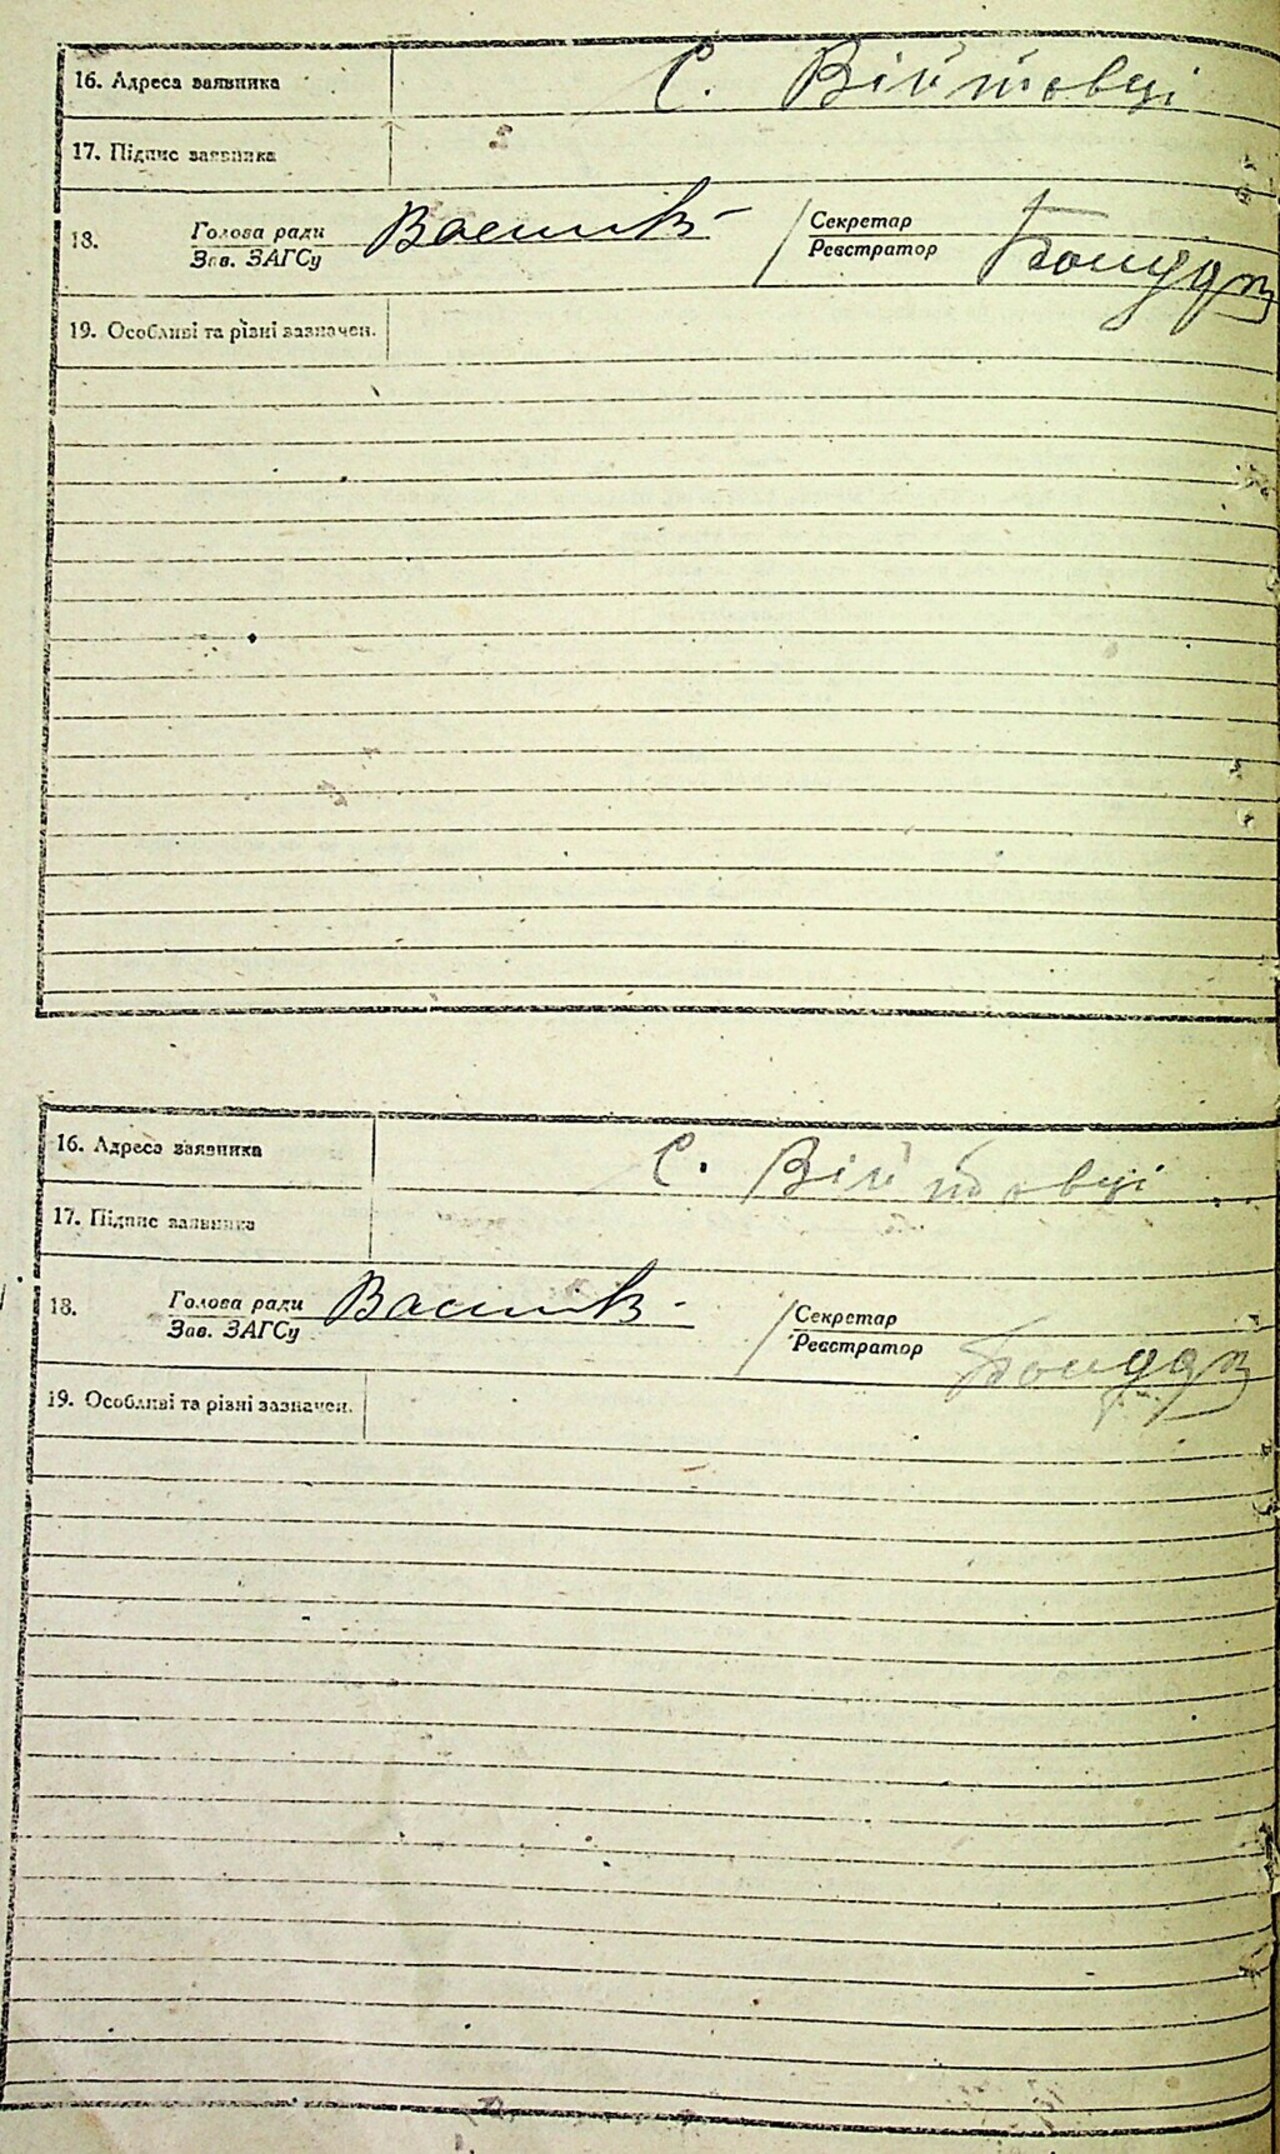 16. Адреса заявника С. Війтовці
17. Підпис заявника
18. Голова ради Василів Секретар
Зав. ЗАГСу Реєстратор
19. Особливі та різні зазначен.
16. Адреса заявника С. Війтовці
17. Підпис заявника
18. Голова ради Секретар
Зав. ЗАГСу Реєстратор
19. Особливі та різні зазначен.